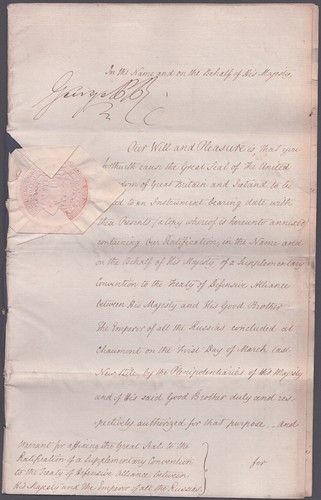 In the Name and on the Behalf of His Majesty,
George P R
Our Will and Pleasure is that you
forthwith cause the Great Seal of the United
dom of Great Britain and Ireland to be
ed to an Instrument bearing date with
these Presents, a Copy whereof is hereunto annexed
containing Our Ratification, in the Name and
on the Behalf of His Majesty, of a Supplementary
Convention to the Treaty of Defensive Alliance
between His Majesty and His Good Brother
The Emperor of all the Russias concluded at
Chaumont on the First Day of March last
New Stile by the Plenipotentiaries of His Majesty
and of His said Good Brother duly and res-
pectively authorized for that purpose. And
for
Warrant for affixing the Great Seal to the
Ratification of a Supplementary Convention
to the Treaty of Defensive Alliance between
His Majesty and the Emperor of all the Russias.